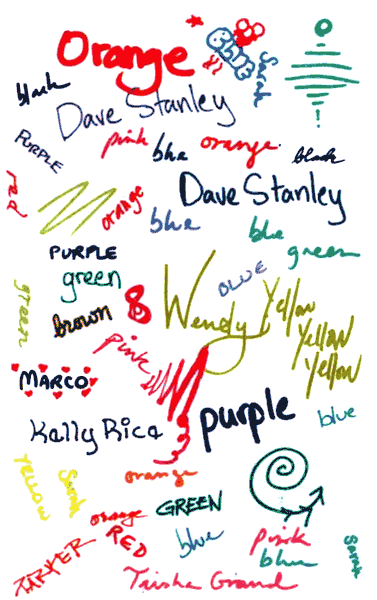 Orange
Sarah
black
Dave Stanley
PURPLE
pink
blue
orange.
black
red
orange
Dave Stanley
blue
blue
green
PURPLE
green
BLUE
green
brown
8
Wendy
Yellow
Yellow
Yellow
pink
MARCO
Kelly Rice
purple
blue
Yellow
Sarah
orange
orange
GREEN
RED
blue
pink
blue
Sarah
PARKER
Trisha Grand